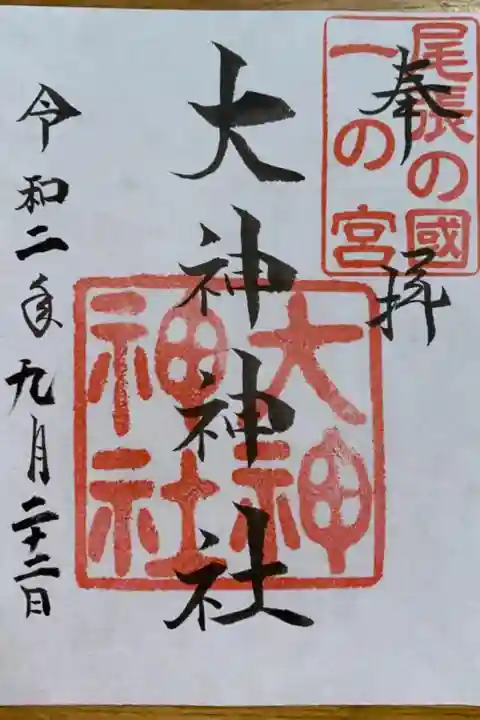 奉拝
尾張の國
一の宮
大神神社
大神
神社
令和二年九月二十二日